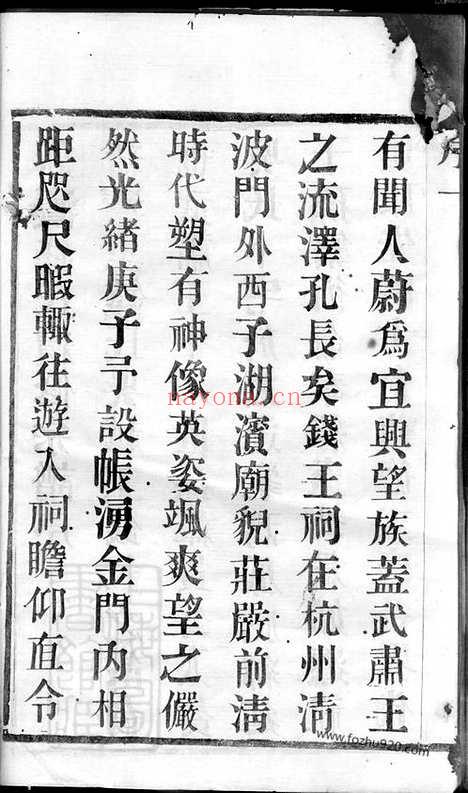 序
一
有聞人蔚爲宜興望族蓋武肅王
之流澤孔長矣錢王祠在杭州淸
波門外西子湖濱廟貌莊嚴前淸
時代塑有神像英姿颯爽望之儼
然光緒庚子予設帳湧金門內相
距咫尺暇輒往遊入祠瞻仰直令
nayona.cn
www.fozhu920.com